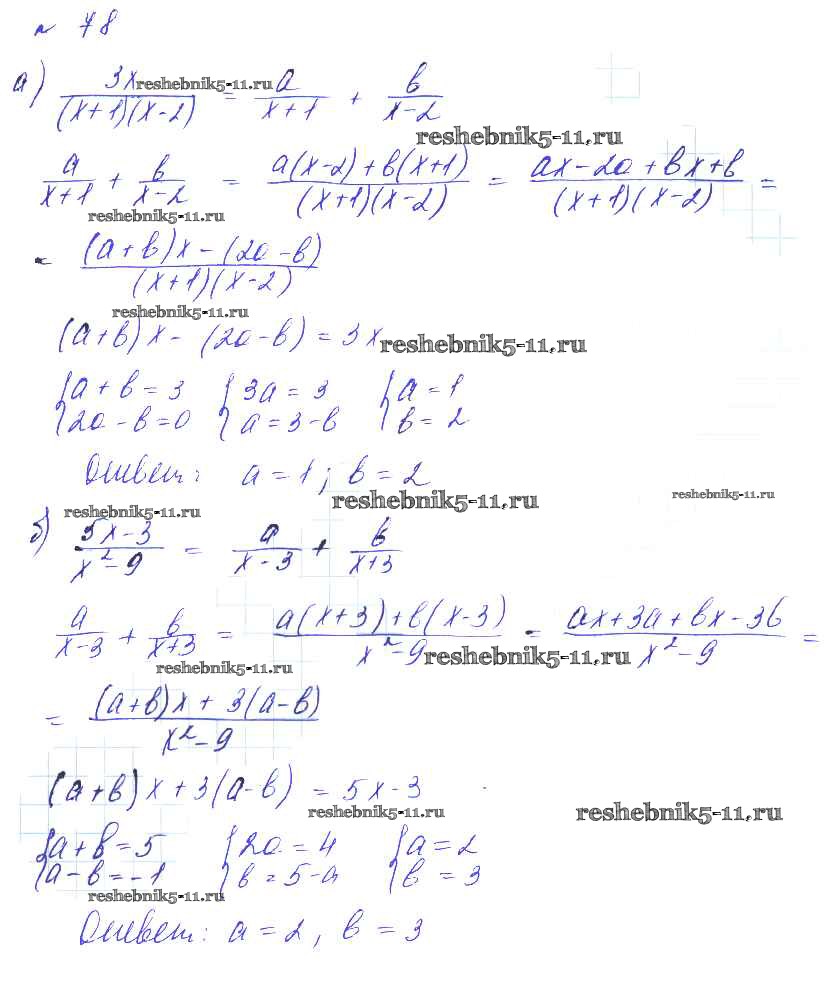 № 78
а) 3x/((x+1)(x-2)) = a/(x+1) + b/(x-2)
reshebnik5-11.ru
reshebnik5-11.ru
a/(x+1) + b/(x-2) = (a(x-2)+b(x+1))/((x+1)(x-2)) = (ax-2a+bx+b)/((x+1)(x-2)) =
reshebnik5-11.ru
= ((a+b)x-(2a-b))/((x+1)(x-2))
reshebnik5-11.ru
(a+b)x-(2a-b)=3x
reshebnik5-11.ru
{a+b=3 {3a=3 {a=1
{2a-b=0 {a=3-b {b=2
Ответ: a=1; b=2
reshebnik5-11.ru
reshebnik5-11.ru
reshebnik5-11.ru
б) (5x-3)/(x²-9) = a/(x-3) + b/(x+3)
a/(x-3) + b/(x+3) = (a(x+3)+b(x-3))/(x²-9) = (ax+3a+bx-3b)/(x²-9) =
reshebnik5-11.ru
reshebnik5-11.ru
= ((a+b)x+3(a-b))/(x²-9)
(a+b)x+3(a-b)=5x-3
reshebnik5-11.ru
reshebnik5-11.ru
{a+b=5 {2a=4 {a=2
{a-b=-1 {b=5-a {b=3
reshebnik5-11.ru
Ответ: a=2, b=3